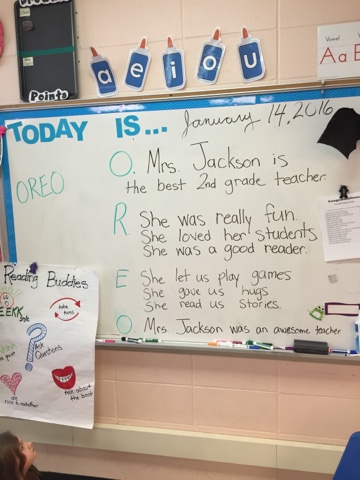 Points
a e i o u
Vowel
A a E
TODAY IS... January 14, 2016
OREO
O. Mrs. Jackson is
the best 2nd grade teacher.
R She was really fun.
She loved her students
She was a good reader.
E She let us play games
She gave us hugs
She read us stories.
O Mrs. Jackson was an awesome teacher
Reading Buddies
EEKK
take
turns
Ask
Questions
talk about
the book